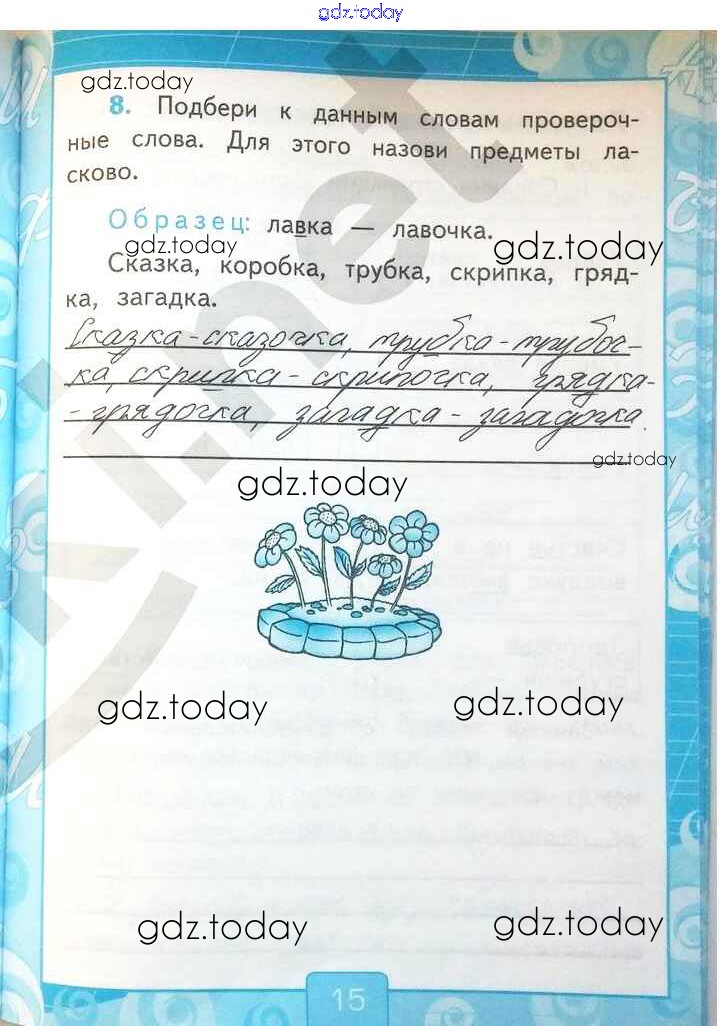 gdz.today
gdz.today
8. Подбери к данным словам провероч-
ные слова. Для этого назови предметы ла-
сково.
Образец: лавка — лавочка.
gdz.today
gdz.today
Сказка, коробка, трубка, скрипка, гряд-
ка, загадка.
Сказка - сказочка, трубка - трубоч-
ка, скрипка - скрипочка, грядка-
- грядочка, загадка - загадочка.
gdz.today
gdz.today
gdz.today
gdz.today
gdz.today
gdz.today
15